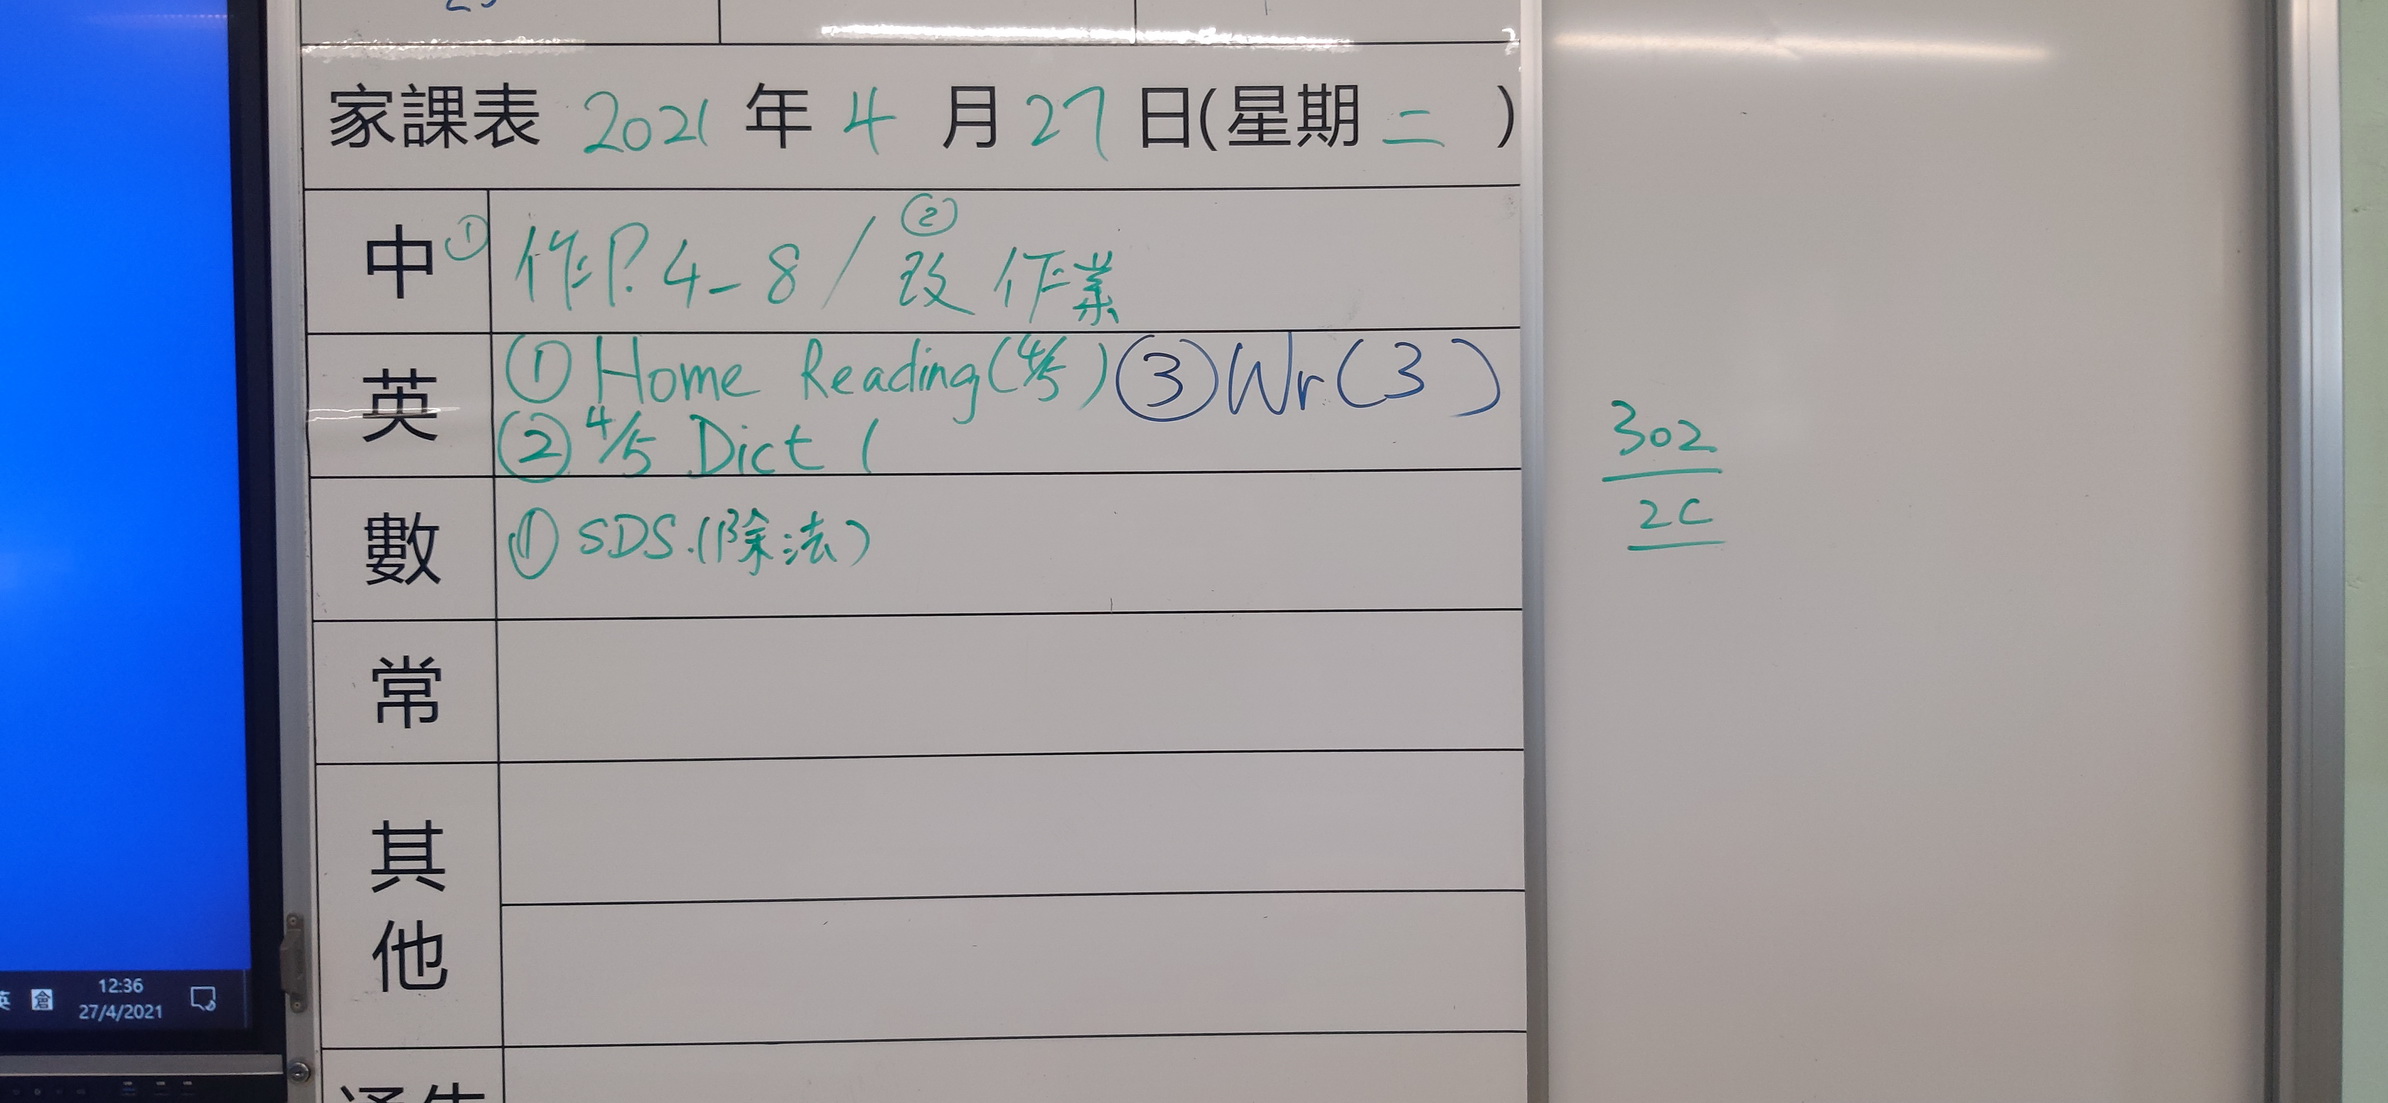 家課表 2021 年 4 月 27 日(星期二 )
中 ① 作P.4-8 / ② 改作業
英 ① Home Reading(4/5) ③ Wr(3 )
② 4/5 Dict (
數 ① SDS.(除法)
常
其他
通告
302
2C
英 倉 12:36
27/4/2021